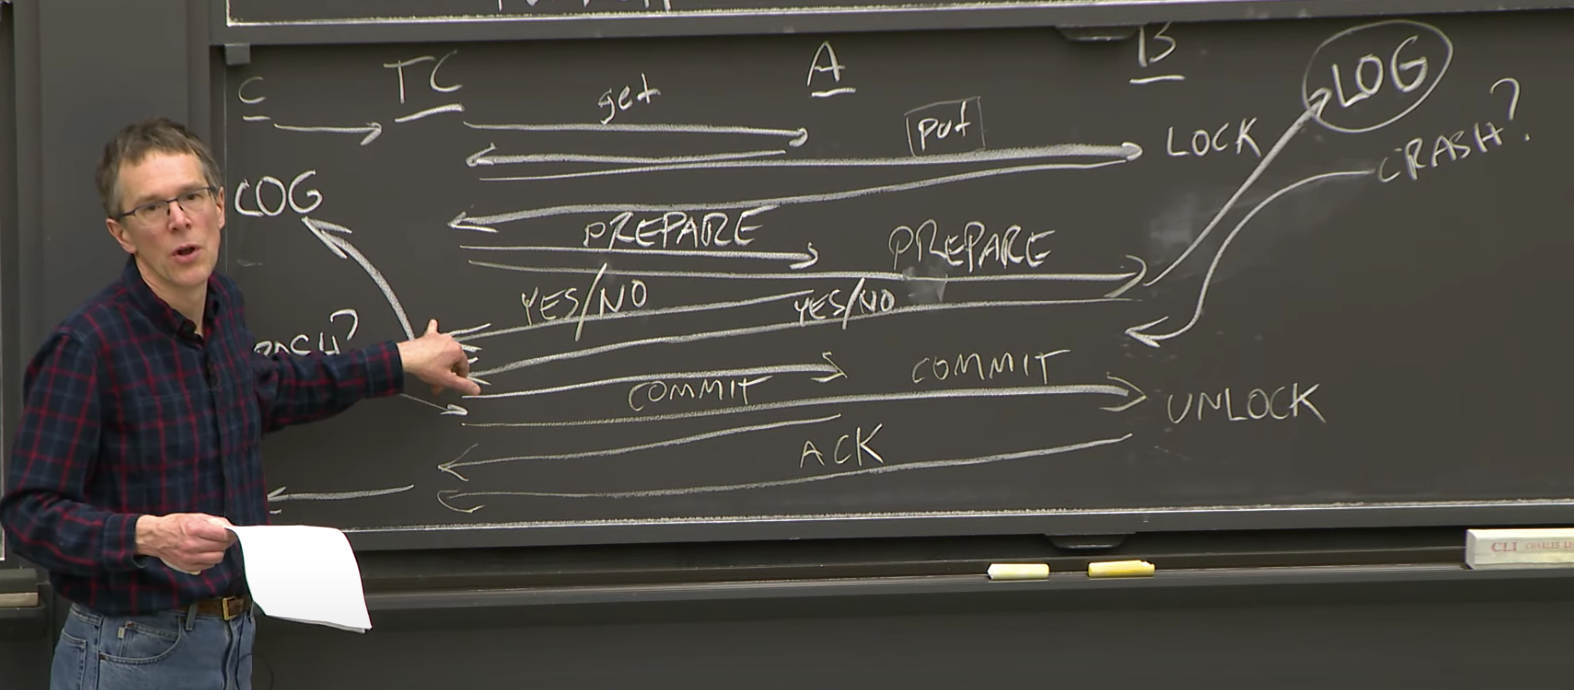 C TC A B
get
put
LOCK
LOG
CRASH?
LOG
PREPARE PREPARE
YES/NO YES/NO
COMMIT COMMIT
UNLOCK
ACK
CLI